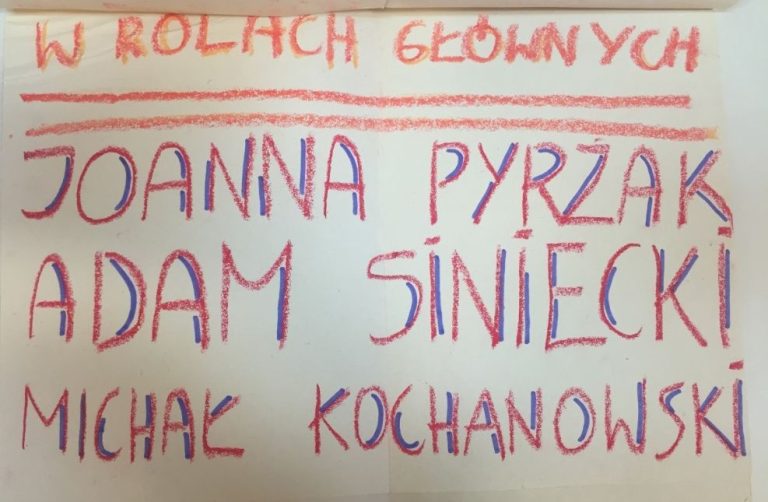 W ROLACH GŁÓWNYCH
JOANNA PYRŻAK
ADAM SINIECKI
MICHAŁ KOCHANOWSKI